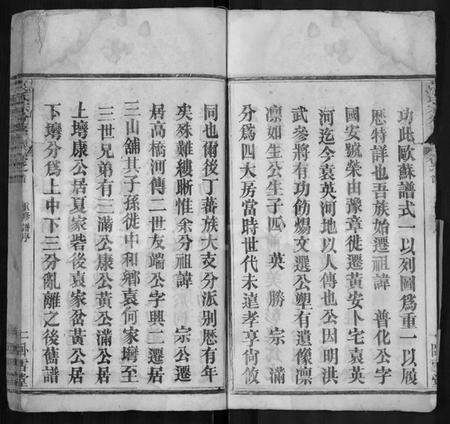 功此歐蘇譜式一以列圖爲重一以履
歷特詳也吾族始遷祖諱 普化公字
國安號榮由豫章徙遷黃安卜宅袁英
河迄今袁英河地以人傳也公因明洪
武參將有功飭賜文選公塑有遺像凛
凛如生公生子四 英 勝 宗 滿
分爲四大房當時世代未遠孝享尙攸
同也爾後丁蕃族大支分派别歷有年
矣殊難縷晰惟余分祖諱 宗公遷
居高橋河傳二世友端公字興二遷居
三山舖其子孫徙中和鄉袁何家塆至
三世兄弟有三滿公康公黃公滿公居
上塆康公居夏家砦後袁家岔黃公居
下塆分爲上中下三分亂離之後舊譜
重修譜序